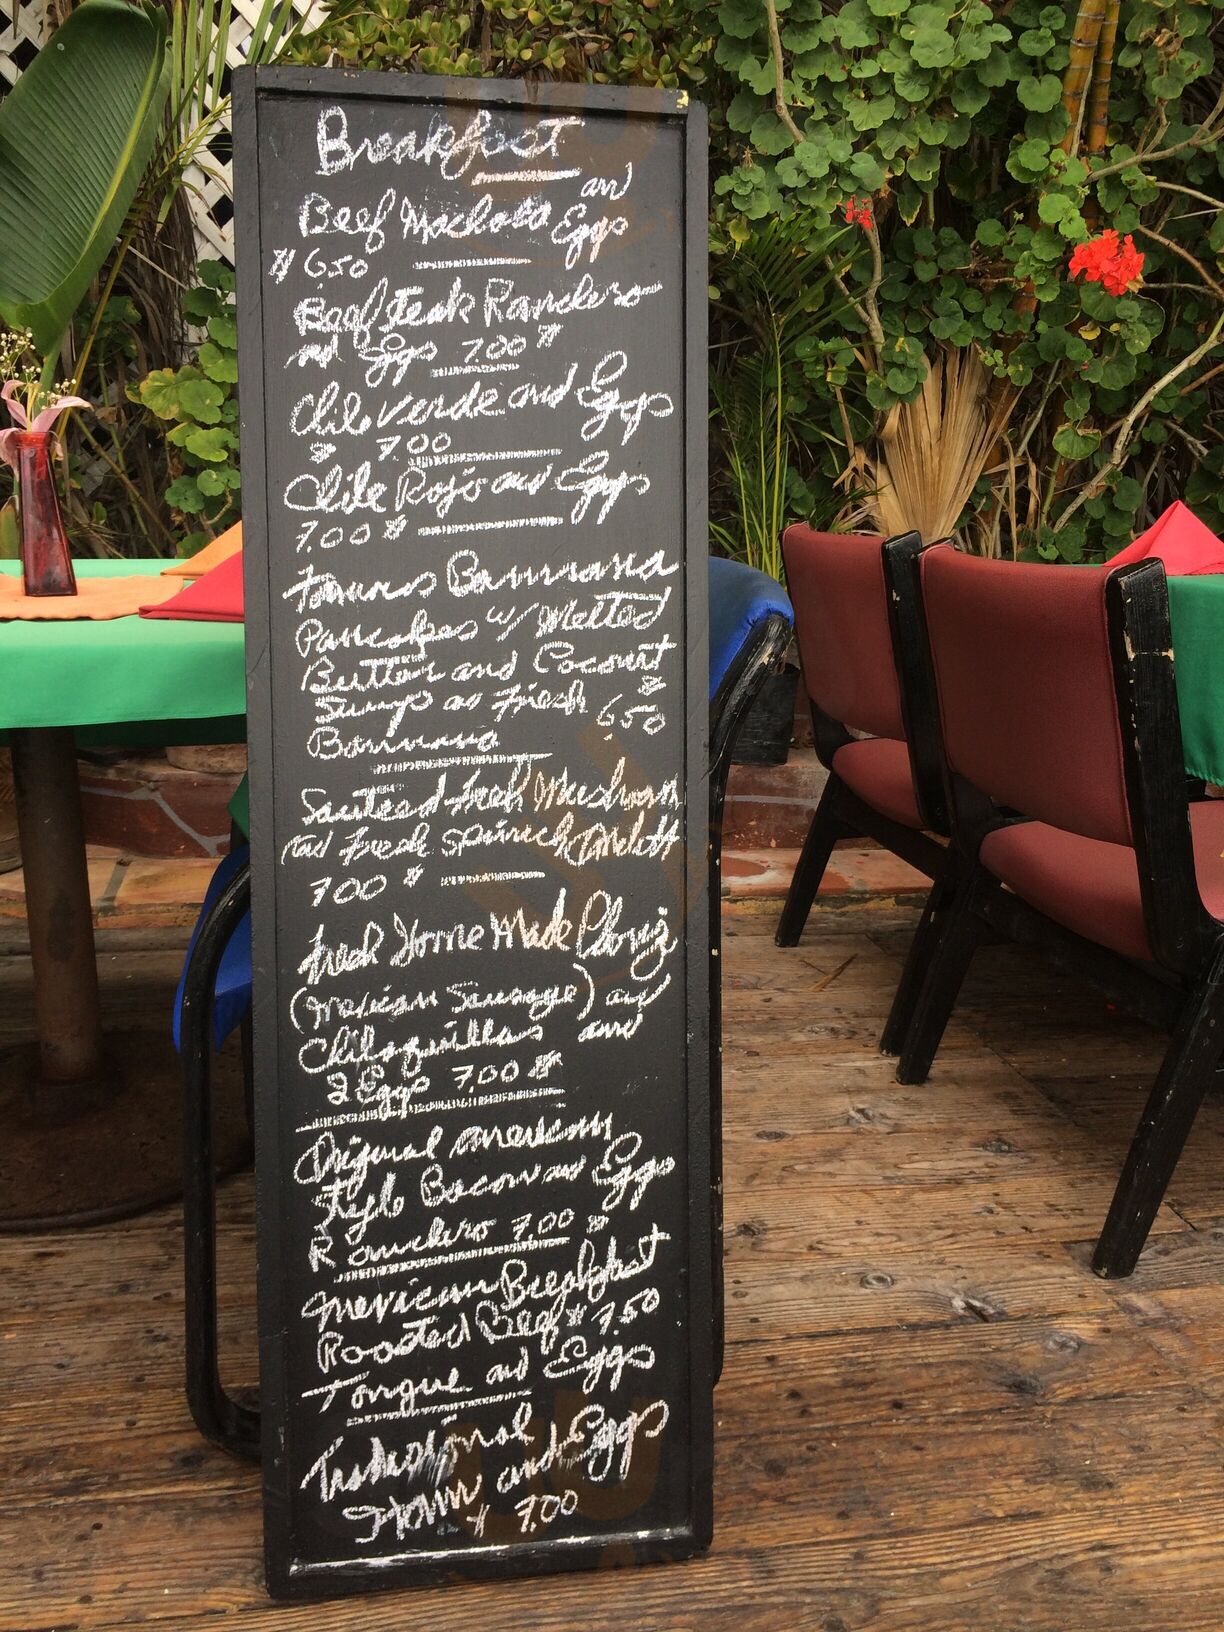 Breakfast
and
Beef Machaca Eggs
$ 6.50
Beef Steak Ranchero
and Eggs 7.00 $
Chile Verde and Eggs
$ 7.00
Chile Rojo and Eggs
7.00 $
Famous Bannana
Pancakes w/ Melted
Butter and Coconut
Syrup as Fresh $ 6.50
Bannana
Sauteed Fresh Mushroom
and Fresh Spinach
7.00 $
Fresh Home Made Choriz
(Mexican Sausage) and
Chilaquillas and
2 Eggs 7.00 $
Original American
Style Bacon and Eggs
Ranchero 7.00 $
Mexican Breakfast
Roasted Beef $ 7.50
Tongue and Eggs
Traditional
Ham and Eggs
$ 7.00